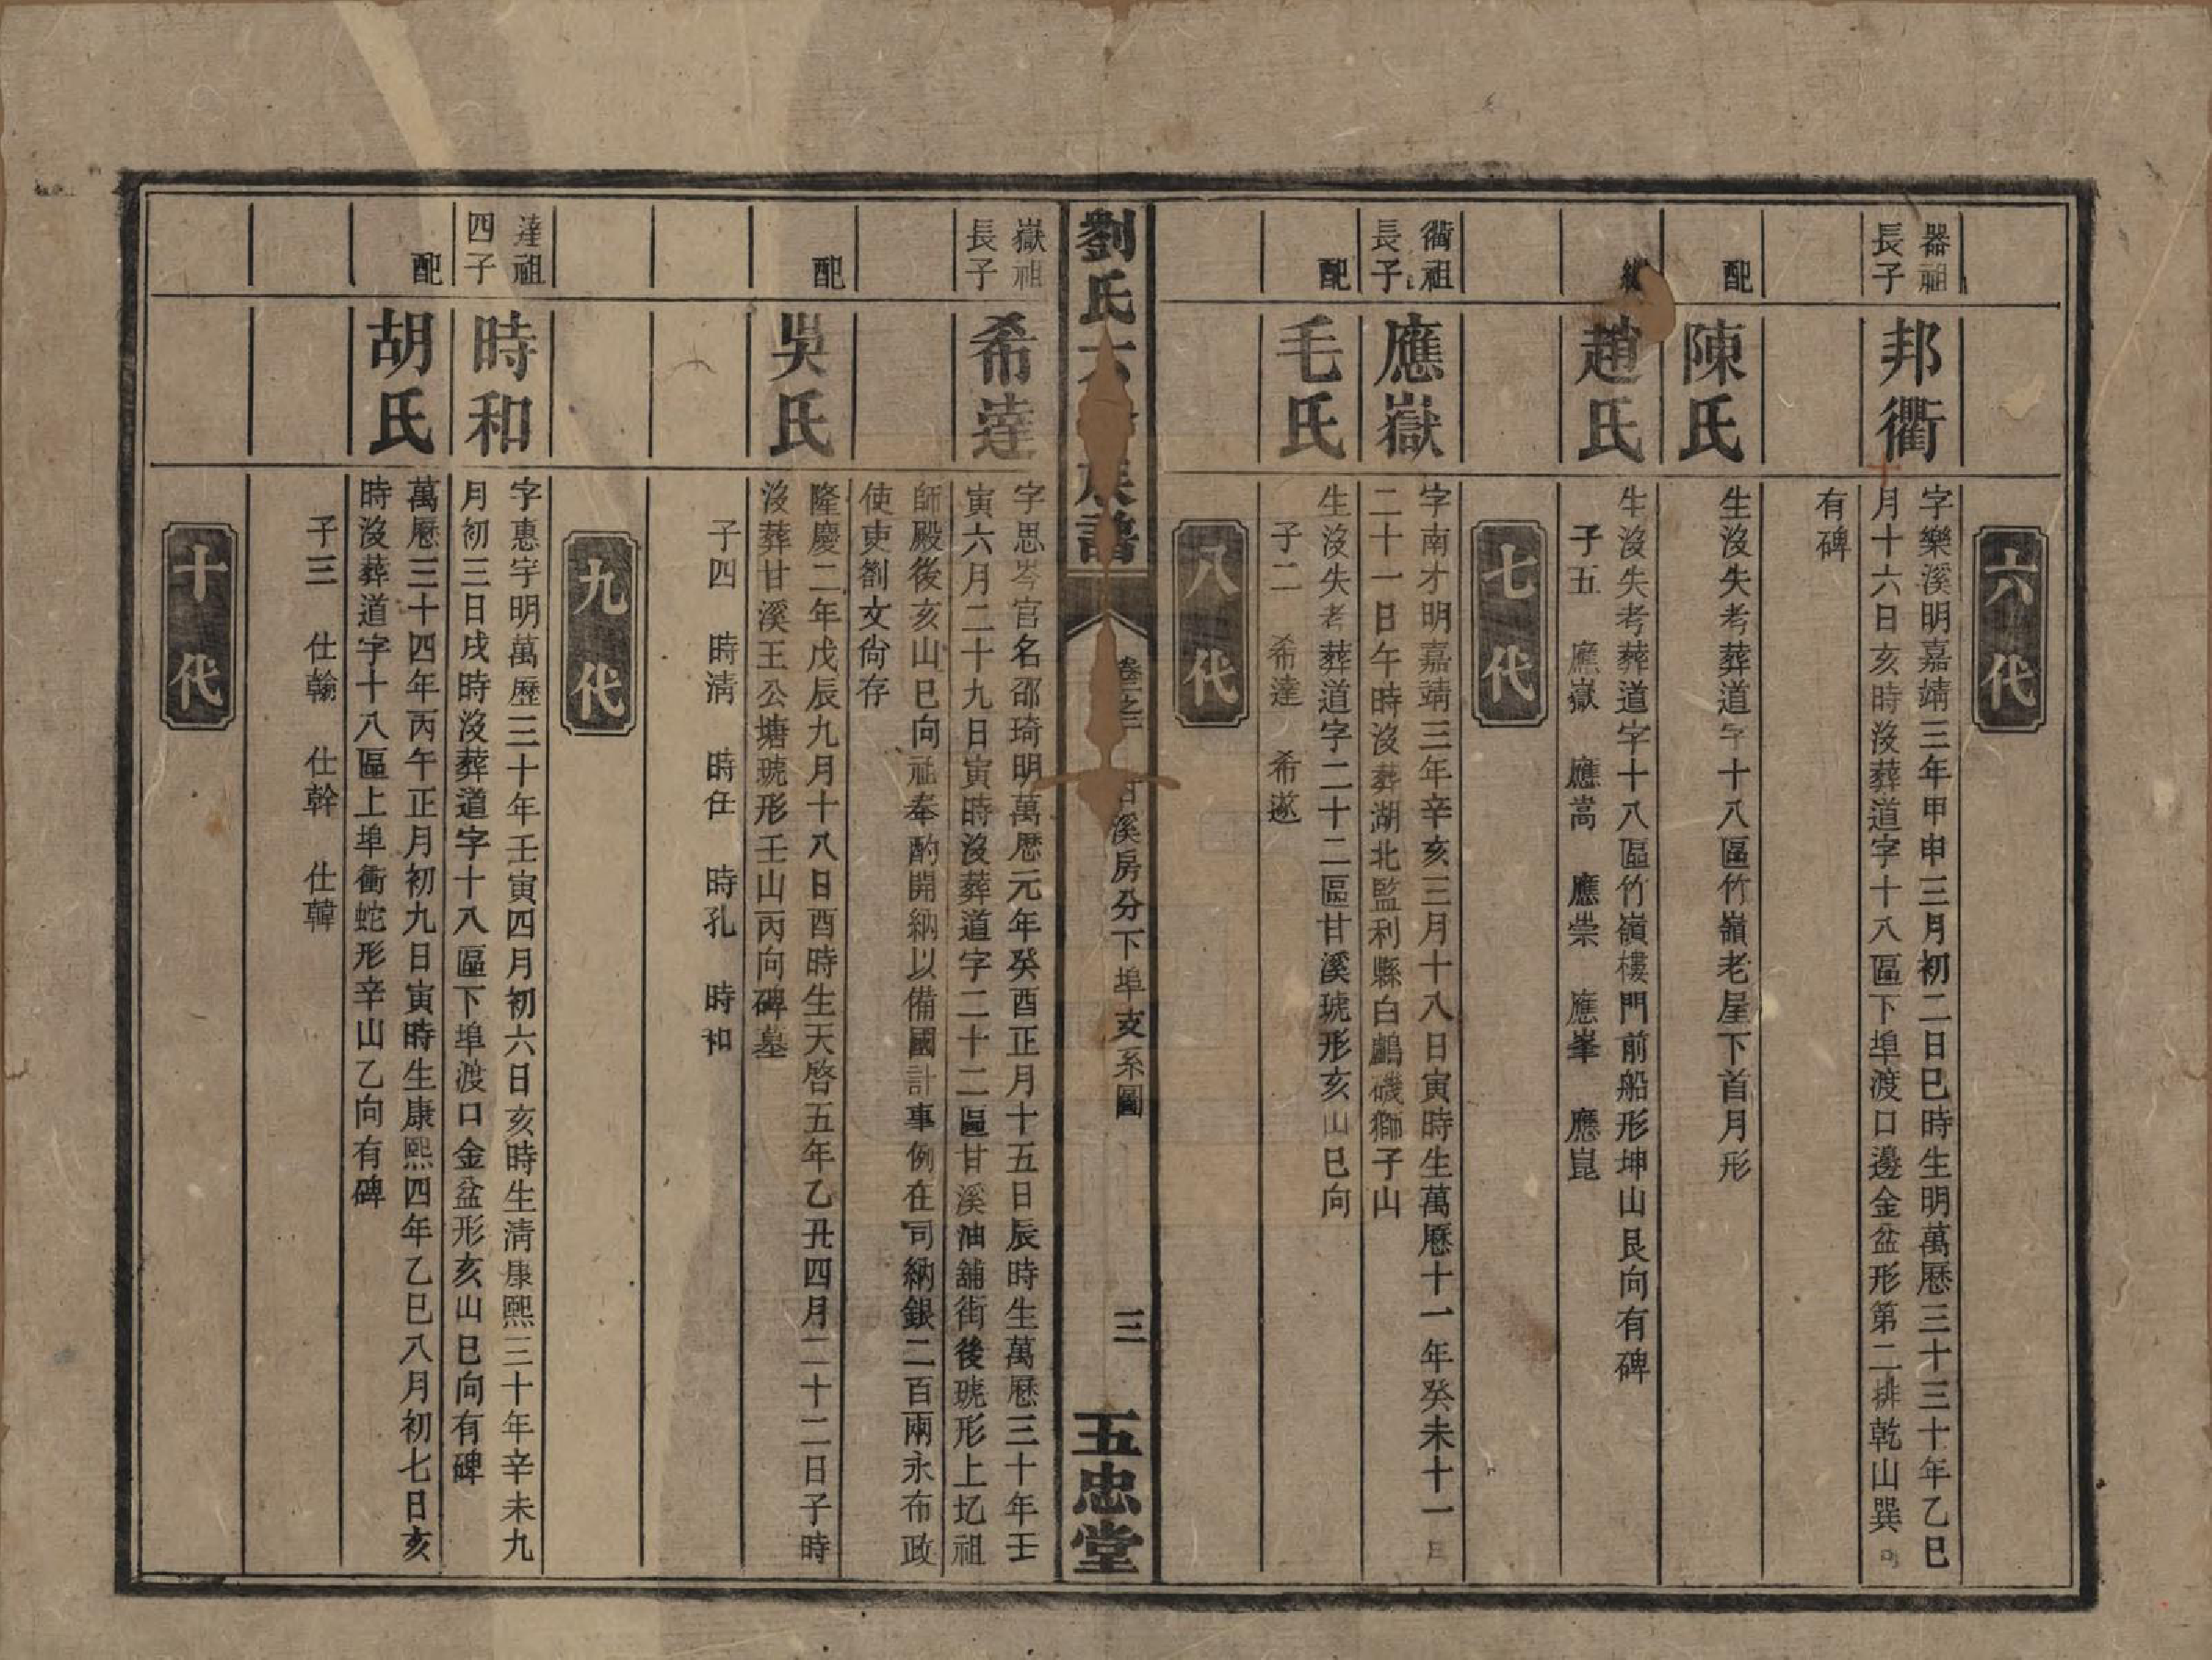 六代
器祖
長子
邦衢
字樂溪明嘉靖三年甲申三月初二日巳時生明萬曆三十三十年乙巳
月十六日亥時沒葬道字十八區下埠渡口邊金盆形第二排乾山巽向
有碑
配
陳氏
生沒失考葬道字十八區竹嶺老屋下首月形
趙氏
生沒失考葬道字十八區竹嶺樓門前船形坤山艮向有碑
子五 應嶽 應嵩 應崇 應峯 應崑
七代
衢祖
長子
應嶽
字南才明嘉靖三年辛亥三月十八日寅時生萬曆十一年癸未十一月
二十一日午時沒葬湖北監利縣白鸕磯獅子山
配
毛氏
生沒失考葬道字二十二區甘溪琥形亥山巳向
子二 希達 希遂
八代
劉氏 族譜
卷 之 甘溪房分下埠支系圖
三
五忠堂
嶽祖
長子
希達
字思岑官名邵琦明萬曆元年癸酉正月十五日辰時生萬曆三十年壬
寅六月二十九日寅時沒葬道字二十二區甘溪油舖街後琥形上圪祖
師殿後亥山巳向祗奉酌開納以備國計事例在司納銀二百兩永布政
使吏劄文尙存
配
吳氏
隆慶二年戊辰九月十八日酉時生天啓五年乙丑四月二十二日子時
沒葬甘溪王公塘琥形壬山丙向碑墓
子四 時淸 時任 時孔 時和
九代
達祖
四子
時和
字惠宇明萬歷三十年壬寅四月初六日亥時生淸康熙三十年辛未九
月初三日戌時沒葬道字十八區下埠渡口金盆形亥山巳向有碑
配
胡氏
萬曆三十四年丙午正月初九日寅時生康熙四年乙巳八月初七日亥
時沒葬道字十八區上埠衝蛇形辛山乙向有碑
子三 仕翰 仕幹 仕韓
十代